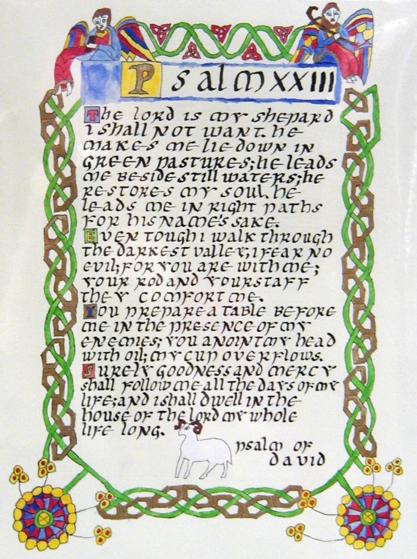 Psalm XXIII
The LORD is my shepard
i shall not want. he
makes me lie down in
green pastures; he leads
me beside still waters; he
restores my soul. he
leads me in right paths
for his name's sake.
Even tough i walk through
the darkest valley, i fear no
evil; for you are with me;
your rod and your staff
they comfort me.
You prepare a table before
me in the presence of my
enemies; you anoint my head
with oil; my cup overflows.
Surely goodness and mercy
shall follow me all the days of my
life; and i shall dwell in the
house of the lord my whole
life long.
psalm of
david